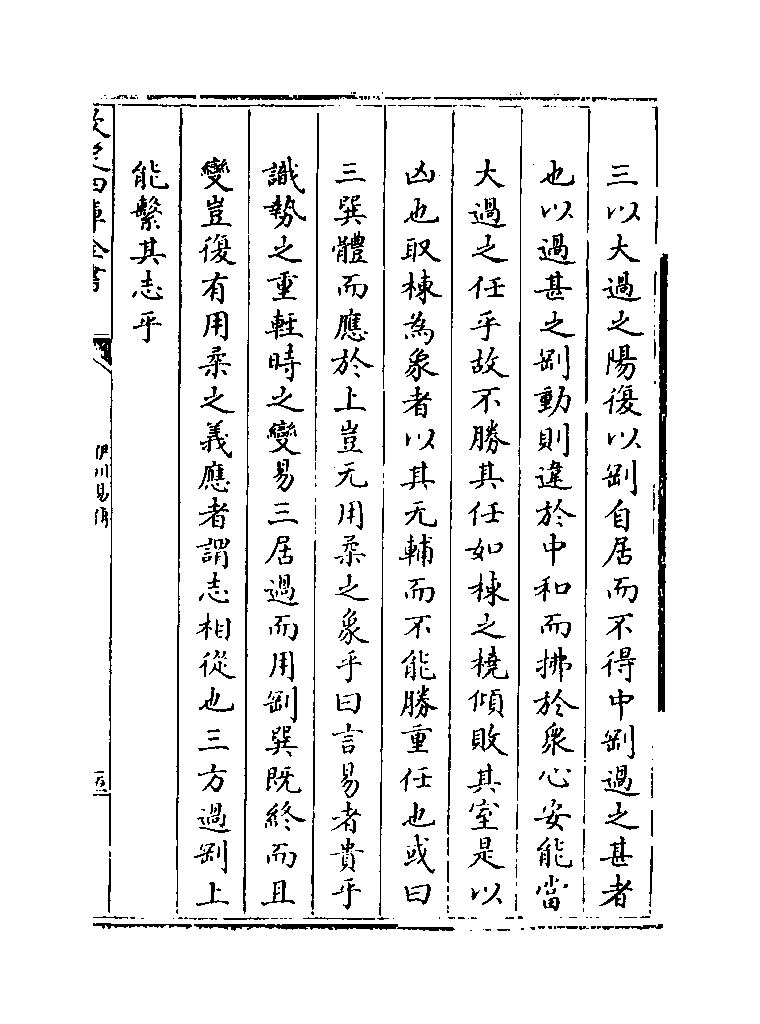 三以大過之陽復以剛自居而不得中剛過之甚者
也以過甚之剛動則違於中和而拂於衆心安能當
大過之任乎故不勝其任如棟之橈傾敗其室是以
凶也取棟為象者以其无輔而不能勝重任也或曰
三巽體而應於上豈无用柔之象乎曰言易者貴乎
識勢之重輕時之變易三居過而用剛巽既終而且
變豈復有用柔之義應者謂志相從也三方過剛上
能繫其志乎
欽定四庫全書
伊川易傳